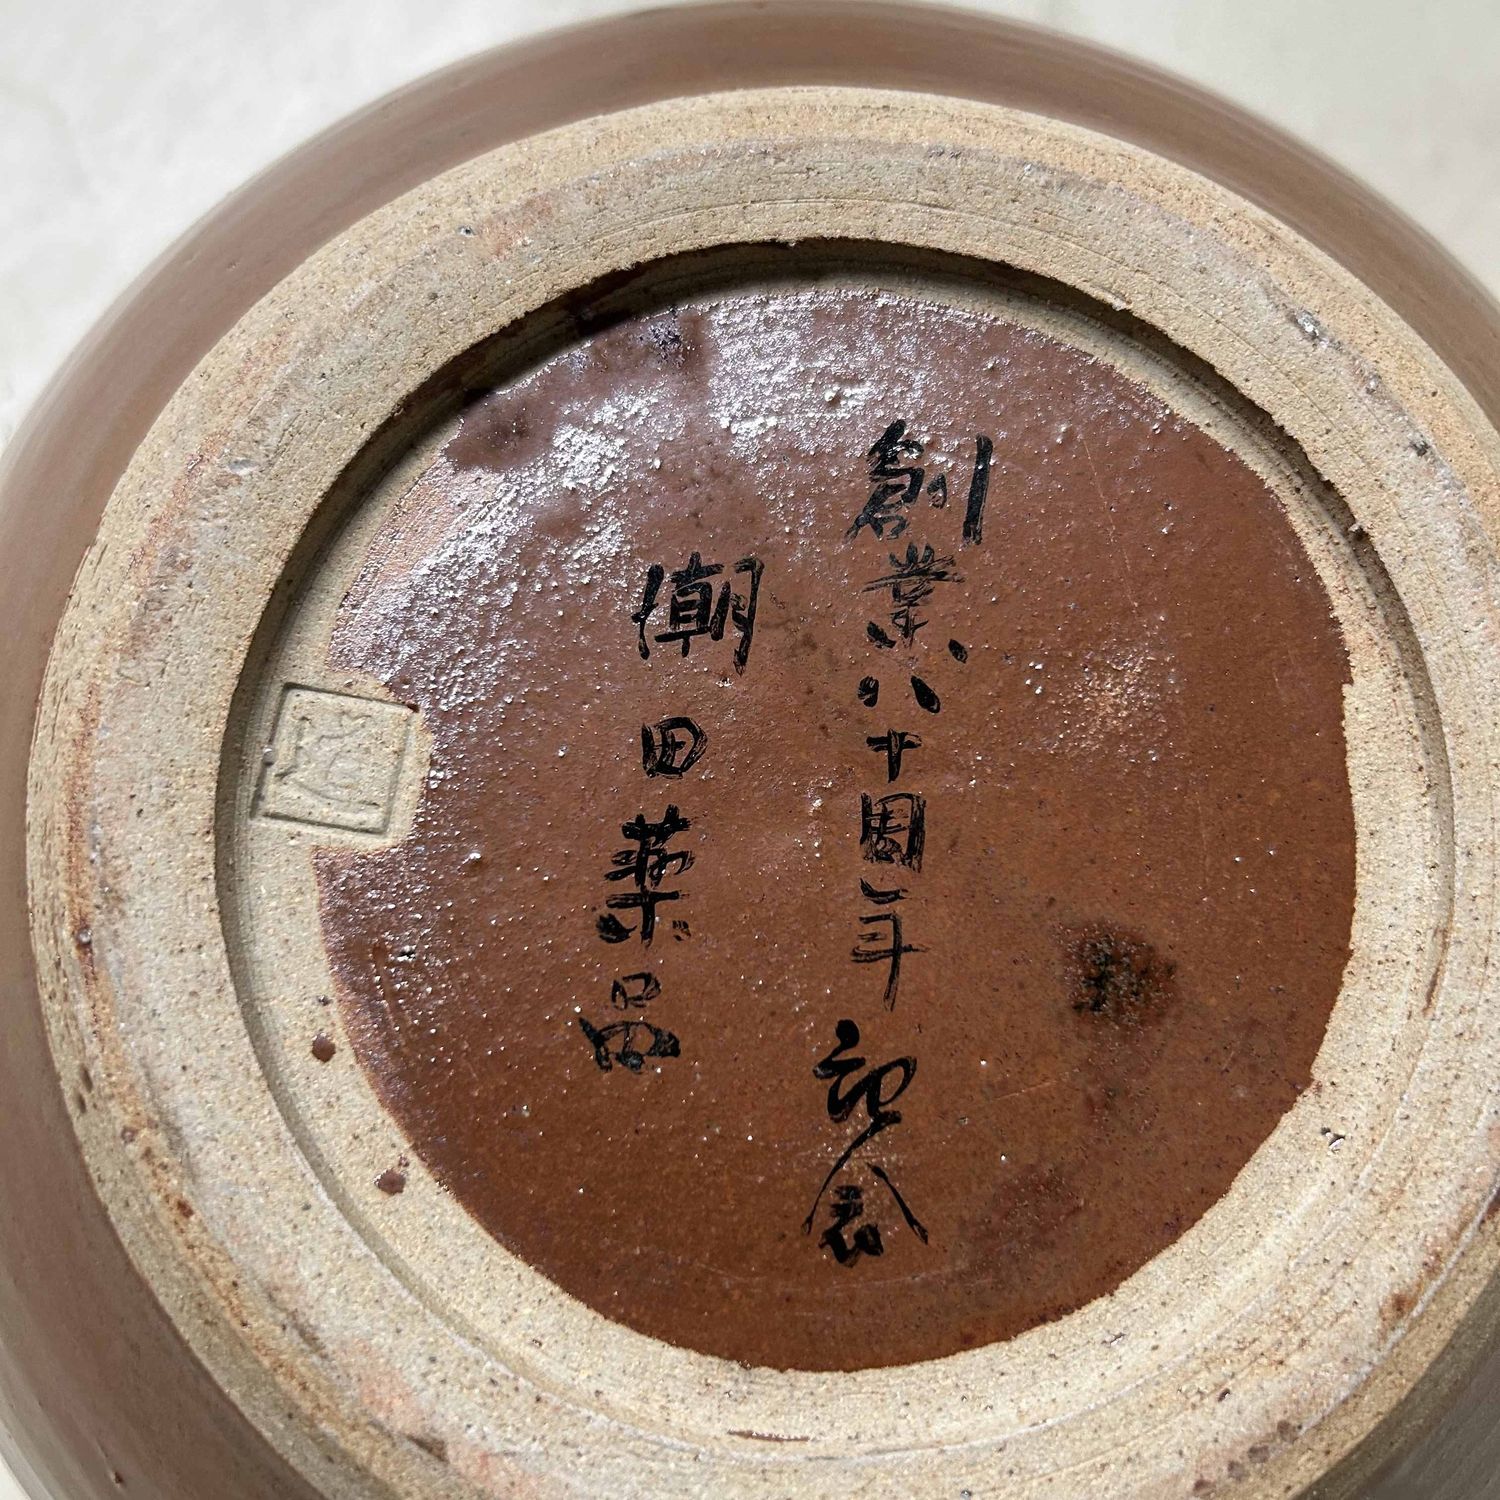 創業八十周年記念
潮田薬品